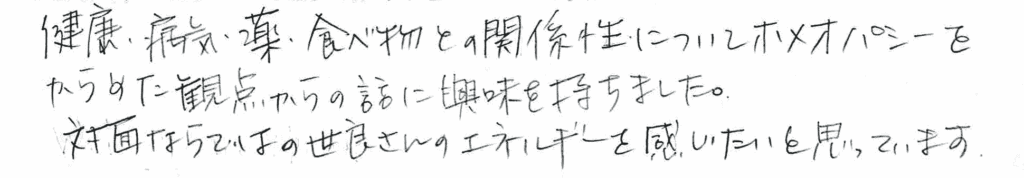 健康・病気・薬・食べ物との関係性についてホメオパシーを
からめた観点からの話に興味を持ちました。
対面ならではの世良さんのエネルギーを感じたいと思っています.